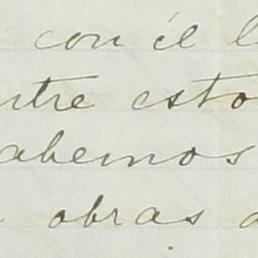 con él l
ntre esto
abemos
obras a